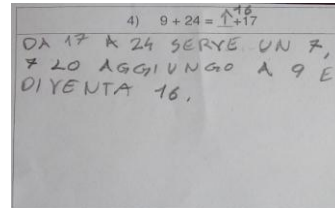 4) 9 + 24 = ↑16+17
DA 17 A 24 SERVE UN 7,
7 LO AGGIUNGO A 9 E
DIVENTA 16.